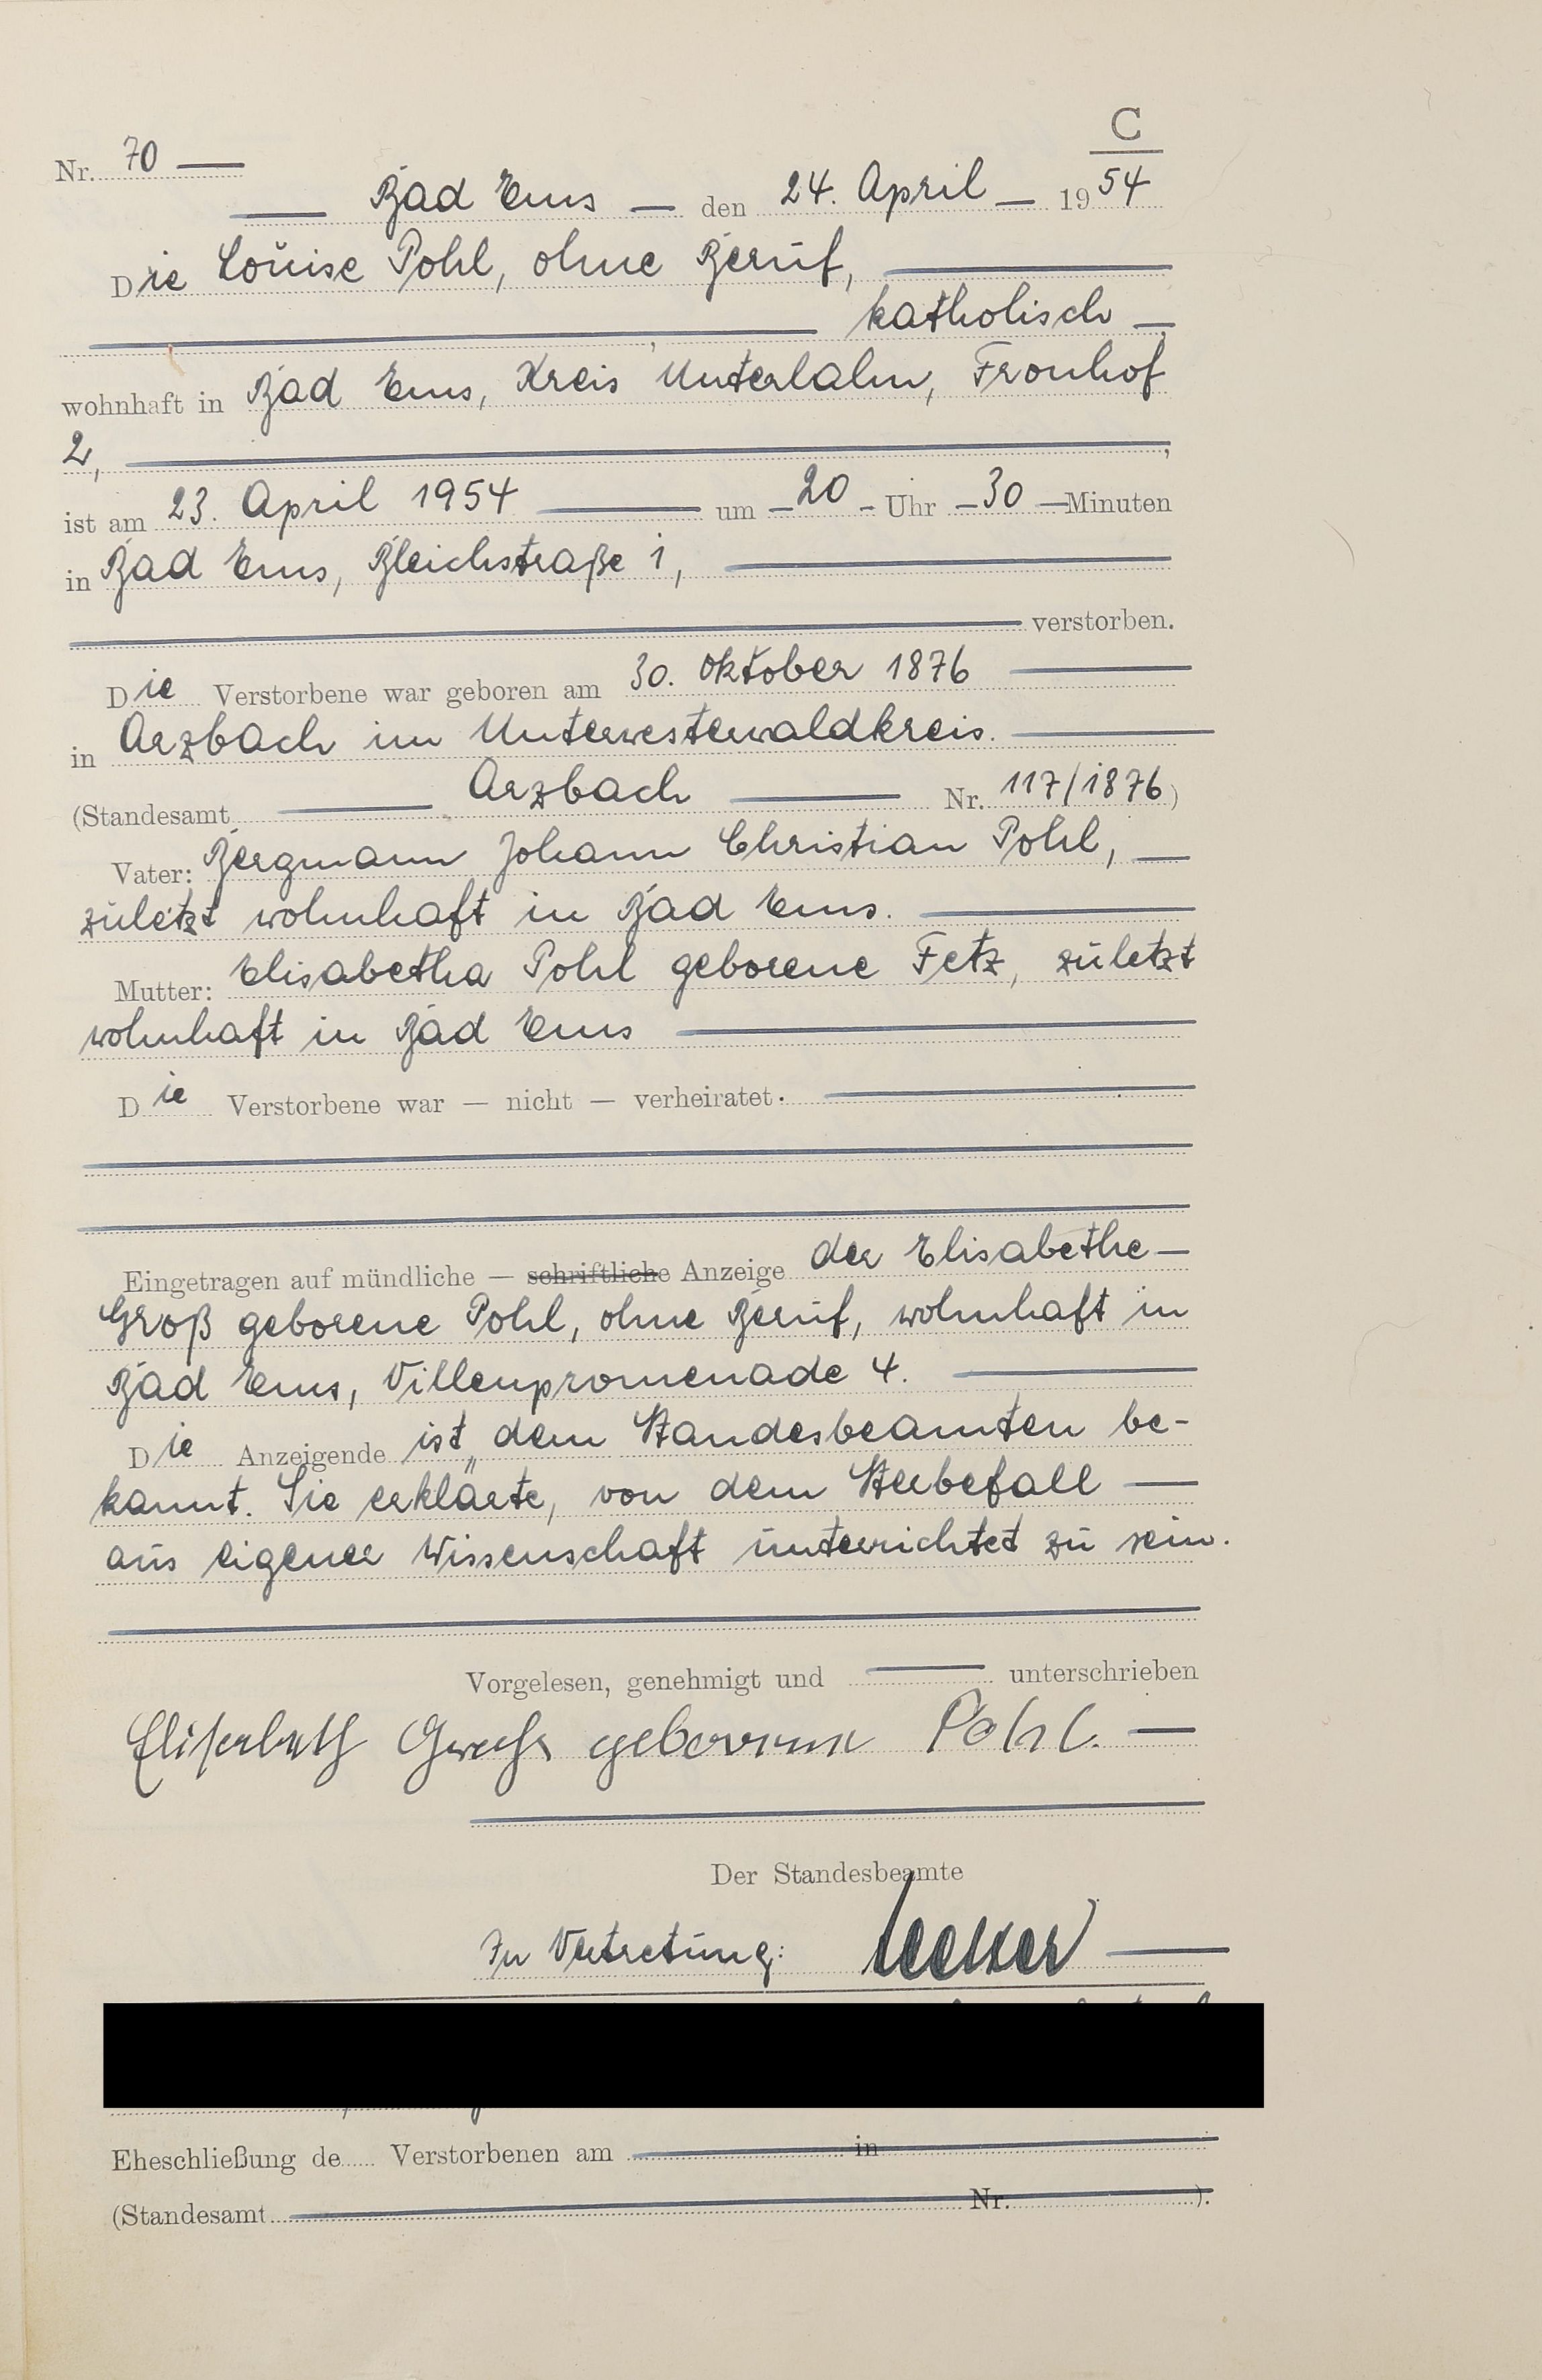 C
Nr. 70
Bad Ems — den 24. April — 1954
Die Louise Pohl, ohne Beruf,
katholisch —
wohnhaft in Bad Ems, Kreis Unterlahn, Fronhof
2,
ist am 23. April 1954 — um — 20 — Uhr — 30 — Minuten
in Bad Ems, Bleichstraße 1,
verstorben.
Die Verstorbene war geboren am 30. Oktober 1876
in Arzbach im Unterwesterwaldkreis.
(Standesamt Arzbach Nr. 117/1876)
Vater: Bergmann Johann Christian Pohl,
zuletzt wohnhaft in Bad Ems.
Mutter: Elisabetha Pohl geborene Fetz, zuletzt
wohnhaft in Bad Ems
Die Verstorbene war — nicht — verheiratet.
Eingetragen auf mündliche — schriftliche Anzeige der Elisabethe
Groß geborene Pohl, ohne Beruf, wohnhaft in
Bad Ems, Villenpromenade 4.
Die Anzeigende ist dem Standesbeamten be-
kannt. Sie erklärte, von dem Sterbefall
aus eigener Wissenschaft unterrichtet zu sein.
Vorgelesen, genehmigt und unterschrieben
Elisabeth Groß geborene Pohl.
Der Standesbeamte
In Vertretung:
Eheschließung de Verstorbenen am in
(Standesamt Nr. ).